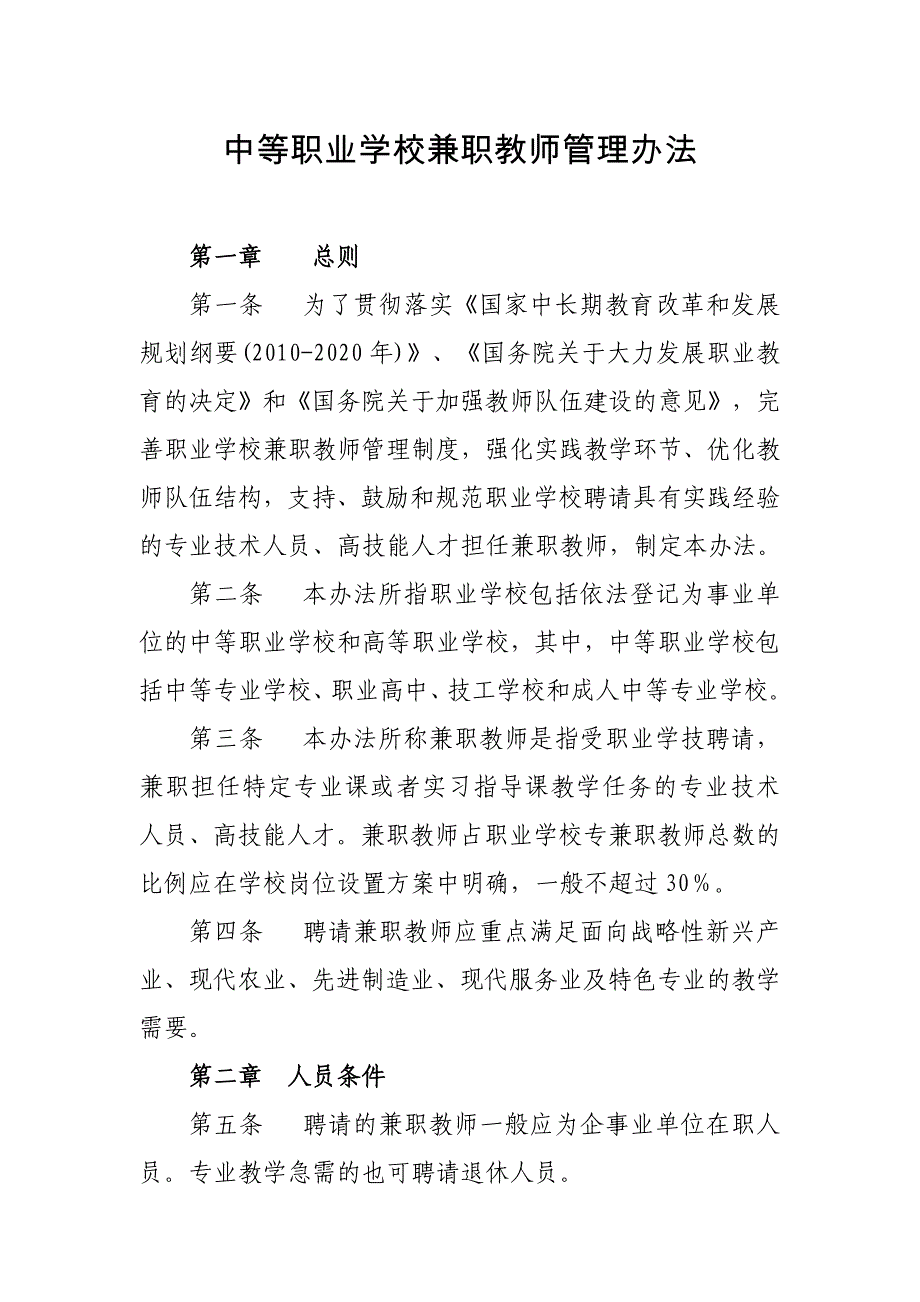 中等职业学校兼职教师管理办法
第一章　　总则
第一条　为了贯彻落实《国家中长期教育改革和发展
规划纲要(2010-2020年)》、《国务院关于大力发展职业教
育的决定》和《国务院关于加强教师队伍建设的意见》，完
善职业学校兼职教师管理制度，强化实践教学环节、优化教
师队伍结构，支持、鼓励和规范职业学校聘请具有实践经验
的专业技术人员、高技能人才担任兼职教师，制定本办法。
第二条　本办法所指职业学校包括依法登记为事业单
位的中等职业学校和高等职业学校，其中，中等职业学校包
括中等专业学校、职业高中、技工学校和成人中等专业学校。
第三条　本办法所称兼职教师是指受职业学技聘请，
兼职担任特定专业课或者实习指导课教学任务的专业技术
人员、高技能人才。兼职教师占职业学校专兼职教师总数的
比例应在学校岗位设置方案中明确，一般不超过30%。
第四条　聘请兼职教师应重点满足面向战略性新兴产
业、现代农业、先进制造业、现代服务业及特色专业的教学
需要。
第二章　人员条件
第五条　聘请的兼职教师一般应为企事业单位在职人
员。专业教学急需的也可聘请退休人员。